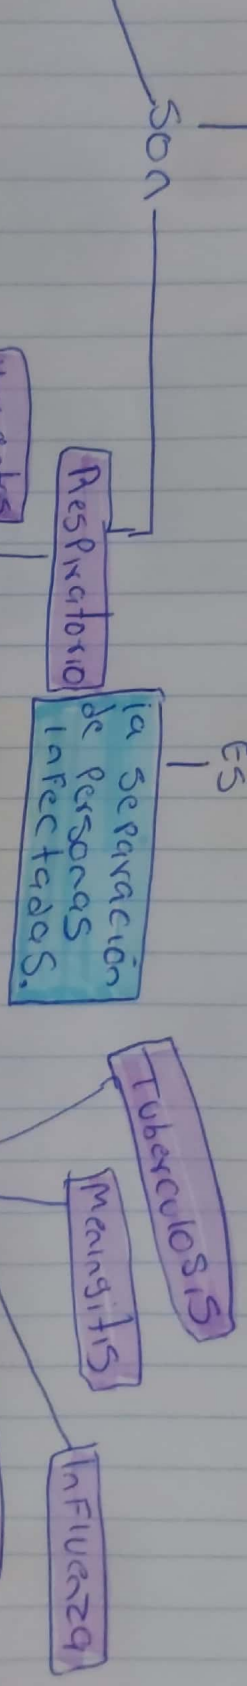 Son
Es
Respiratorio
la separación
de personas
infectadas.
Tuberculosis
Meningitis
Influenza